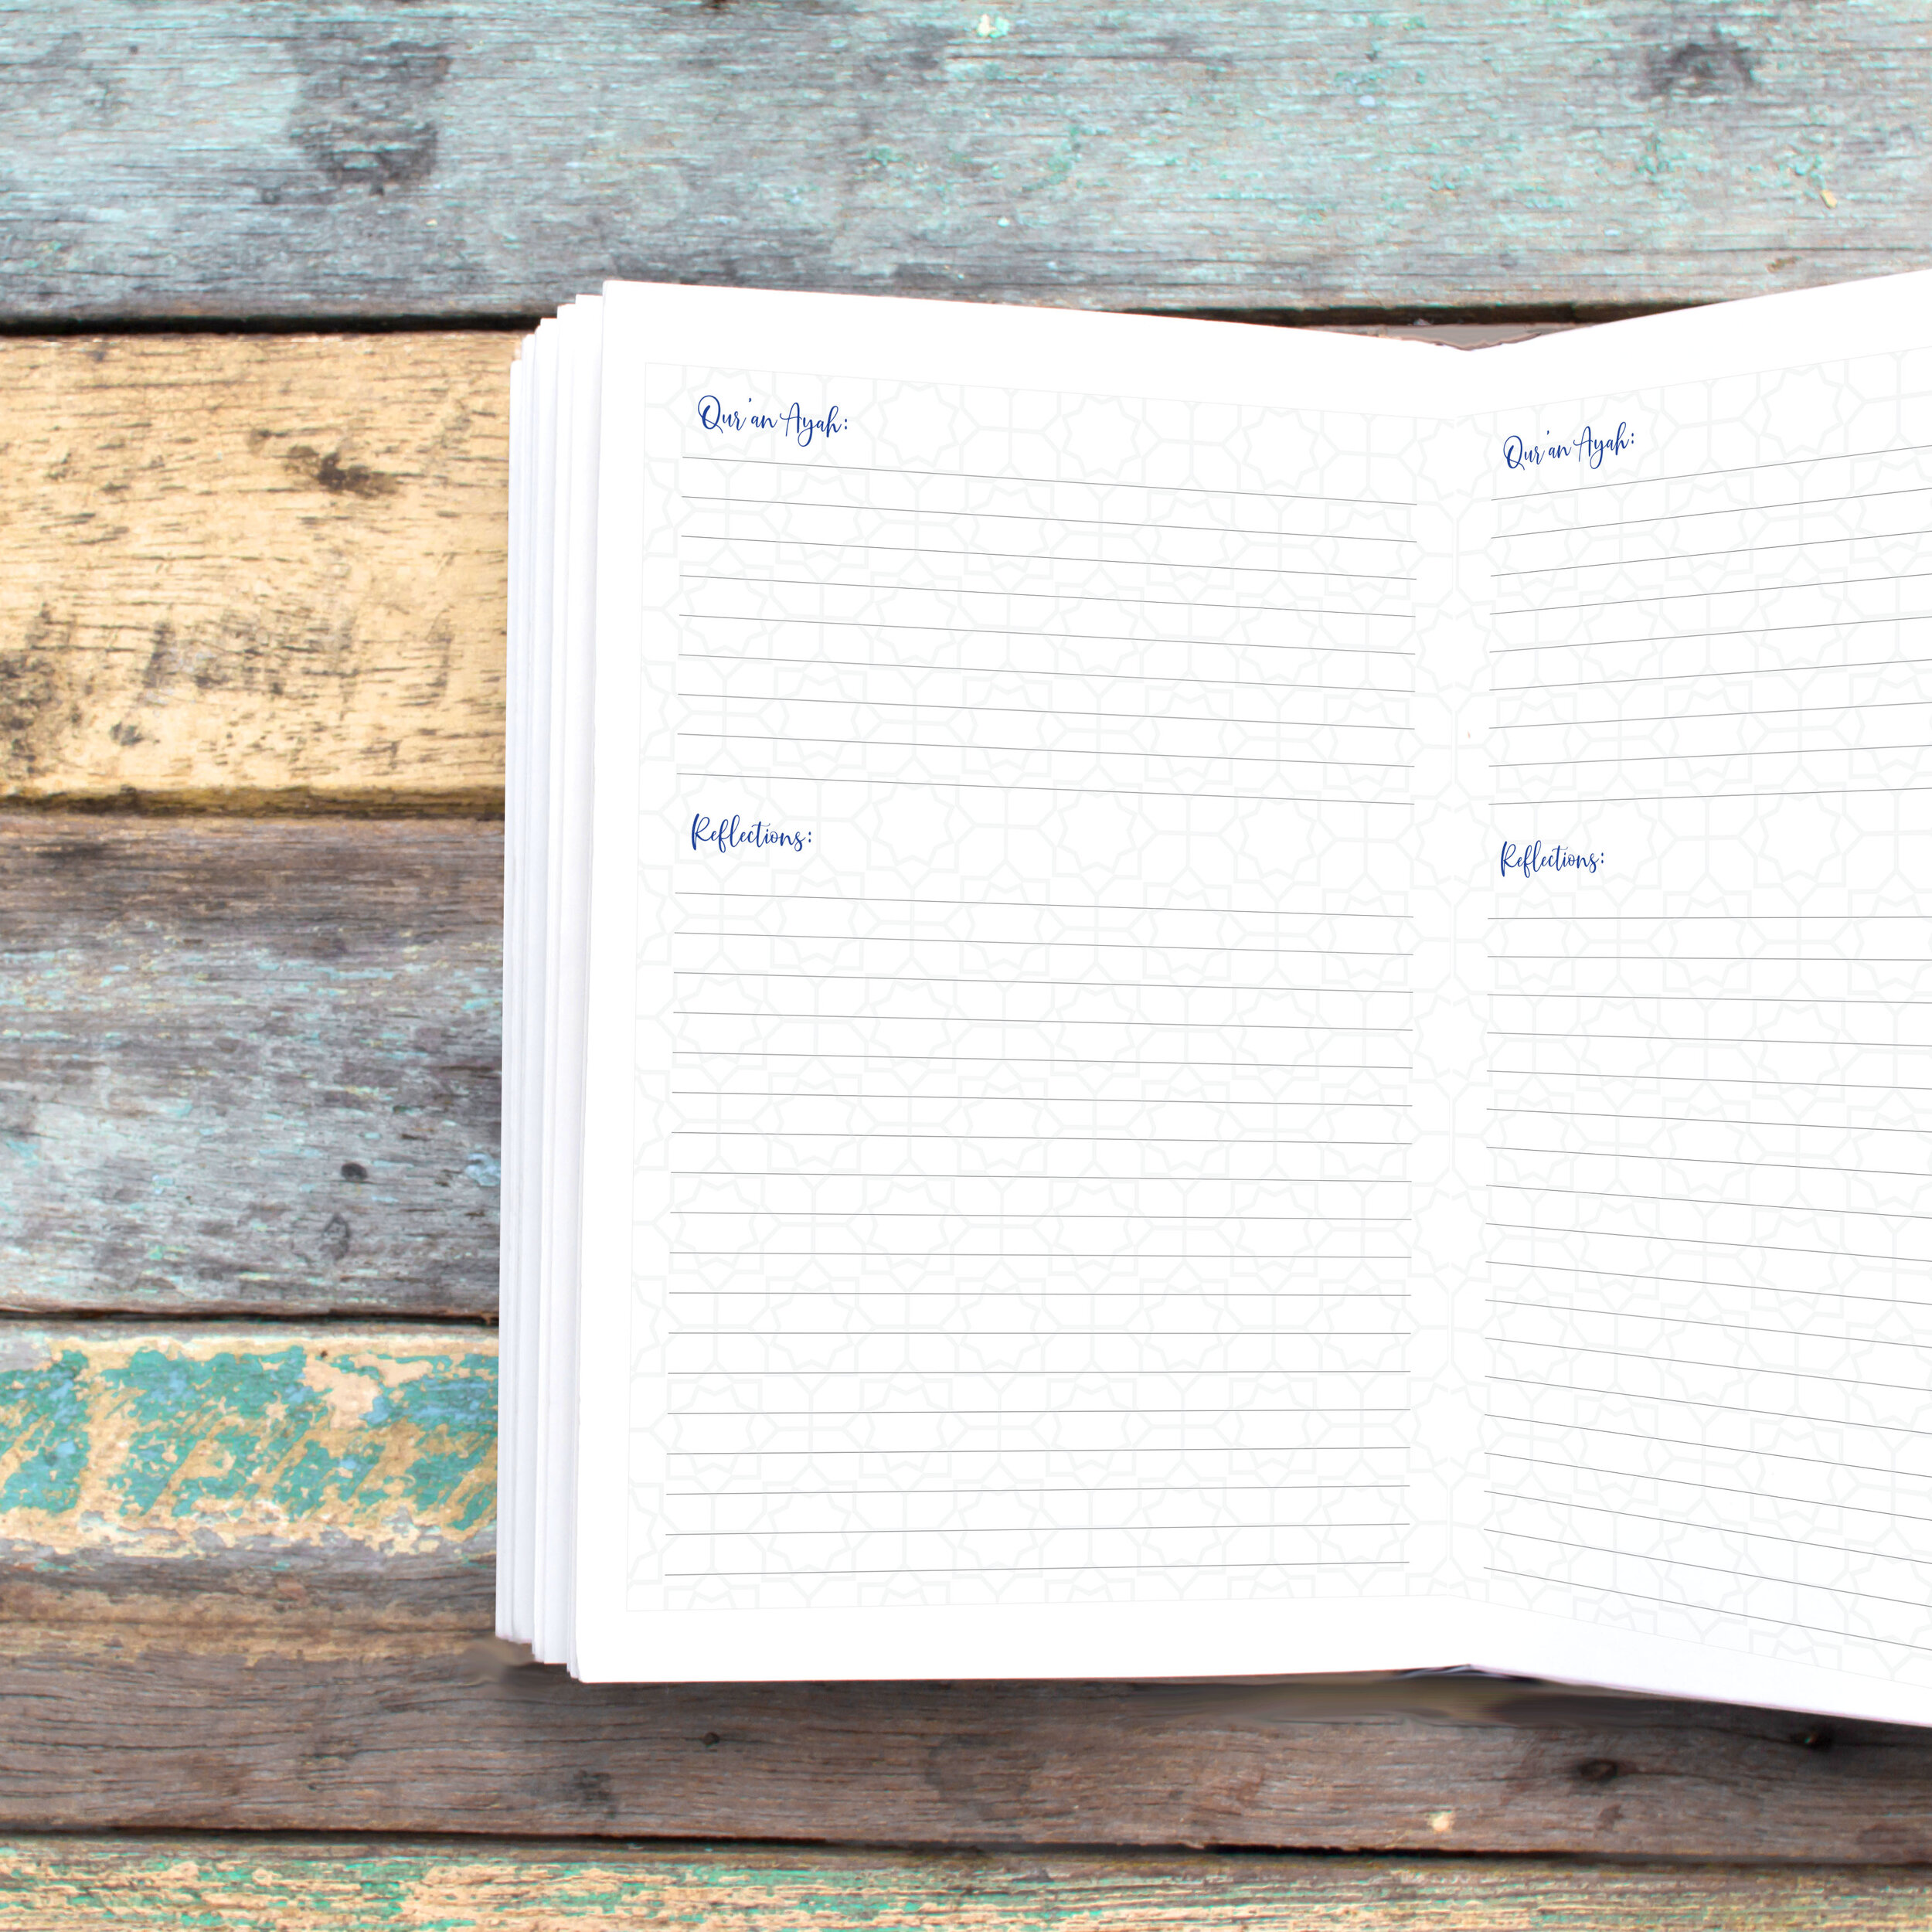 Qur'an Ayah:
Reflections:
Qur'an Ayah:
Reflections: